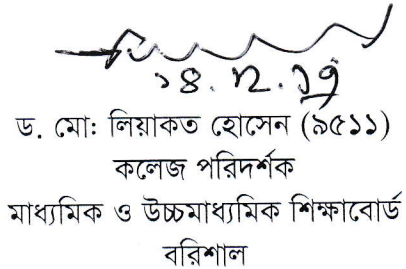 ১৪.১২.১৭
ড. মো: লিয়াকত হোসেন (৯৫১১)
কলেজ পরিদর্শক
মাধ্যমিক ও উচ্চমাধ্যমিক শিক্ষাবোর্ড
বরিশাল